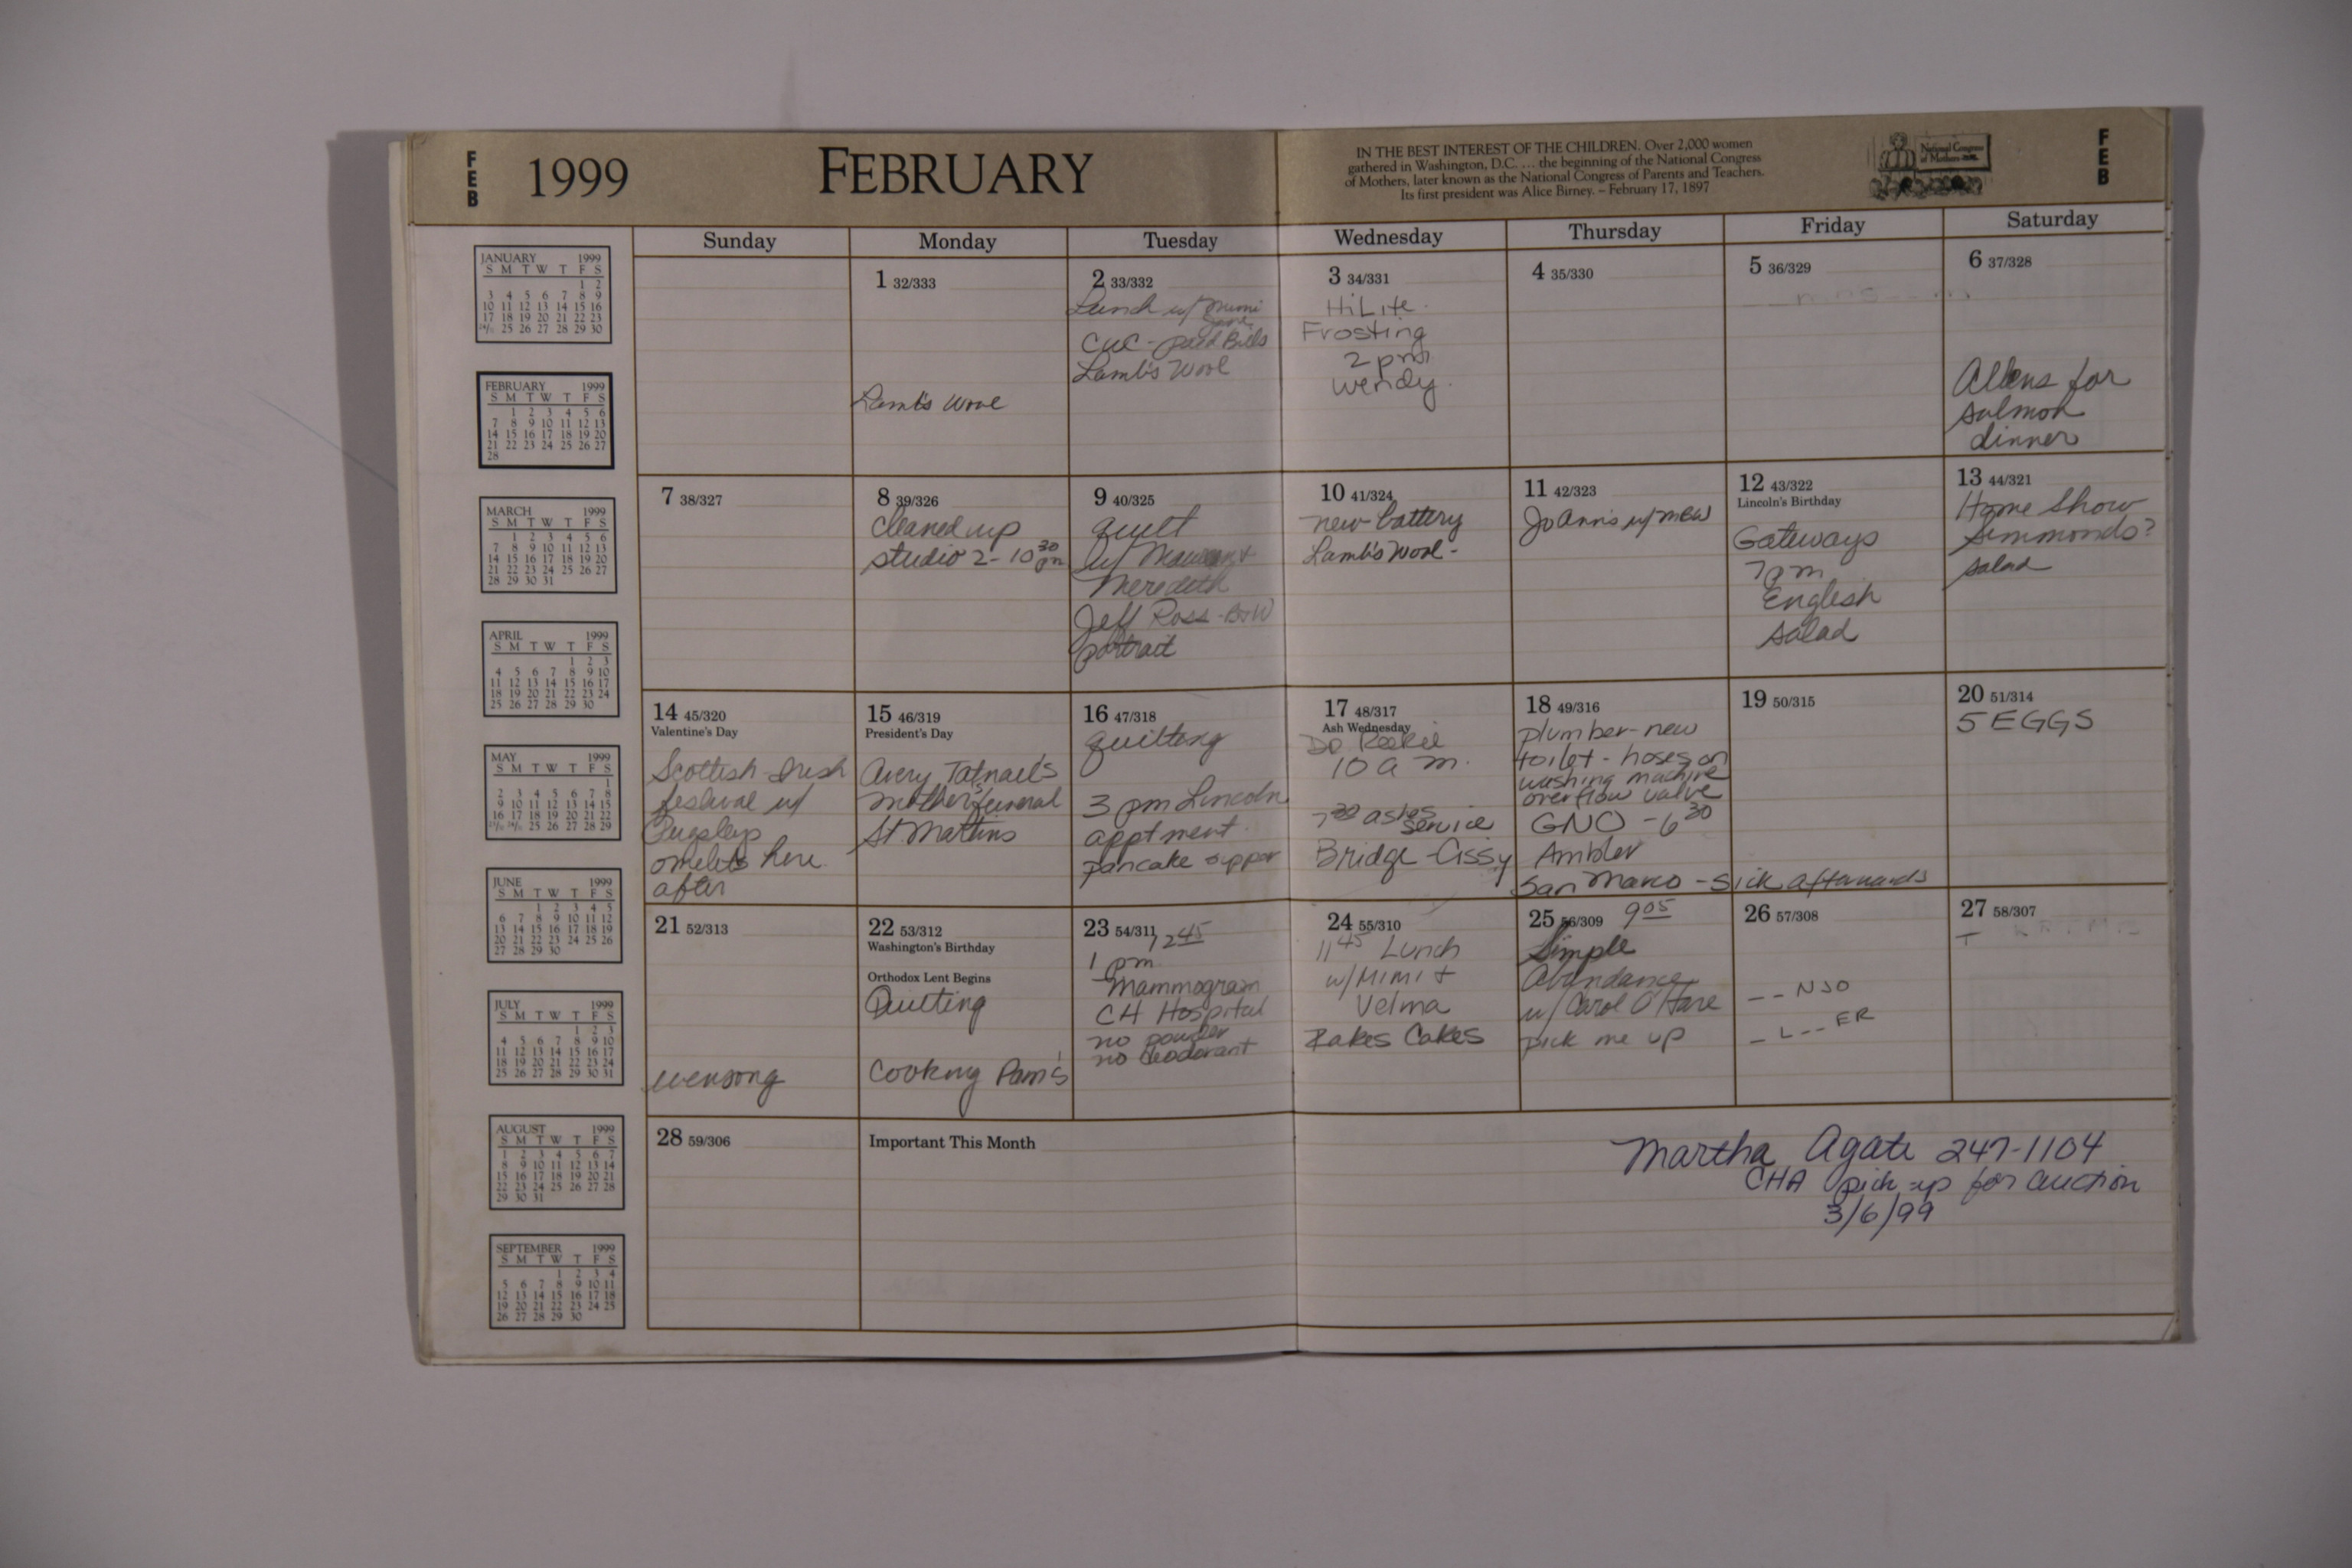 FEB
1999
FEBRUARY
IN THE BEST INTEREST OF THE CHILDREN. Over 2,000 women
gathered in Washington, D.C. ... the beginning of the National Congress
of Mothers, later known as the National Congress of Parents and Teachers.
Its first president was Alice Birney. – February 17, 1897
National Congress
of Mothers
FEB
Sunday Monday Tuesday Wednesday Thursday Friday Saturday
1 32/333
Lamb's Wool
2 33/332
Lunch w/ Mimi
CUC - paid Bills
Lamb's Wool
3 34/331
HiLite
Frosting
2 pm
wendy.
4 35/330
5 36/329
6 37/328
Allens for
salmon
dinner
7 38/327
8 39/326
cleaned up
studio 2-10 30 pm
9 40/325
quilt
w/ Maureen +
Meredith
Jeff Ross - B+W
portrait
10 41/324
new battery
Lamb's Wool -
11 42/323
JoAnn's w/ mew
12 43/322
Lincoln's Birthday
Gateways
7pm
English
salad
13 44/321
Home Show
Simmonds?
salad
14 45/320
Valentine's Day
Scottish-Irish
festival w/
Pugsleys
omelets here
after
15 46/319
President's Day
Avery Tatnall's
mother's funeral
St. Martins
16 47/318
quilting
3 pm Lincoln
apptment
pancake supper
17 48/317
Ash Wednesday
10 a m.
7 30 ashes
service
Bridge - Cissy
18 49/316
plumber-new
toilet - hoses on
washing machine
overflow valve
GNO - 6 30
Ambler
San Marco - sick afterwards
19 50/315
20 51/314
5 EGGS
21 52/313
evensong
22 53/312
Washington's Birthday
Orthodox Lent Begins
Quilting
Cooking Pam's
23 54/311
12 45
1 pm
Mammogram
CH Hospital
no powder
no deodorant
24 55/310
11 45 Lunch
w/ MIMI +
Velma
Bakes Cakes
25 56/309 9 05
Simple
Abundance
w/ Carol O'Hare
pick me up
26 57/308
-- NJO
- L -- ER
27 58/307
28 59/306
Important This Month
Martha Agate 247-1104
CHA pick-up for auction
3/6/99
JANUARY 1999
S M T W T F S
1 2
3 4 5 6 7 8 9
10 11 12 13 14 15 16
17 18 19 20 21 22 23
24/31 25 26 27 28 29 30
FEBRUARY 1999
S M T W T F S
1 2 3 4 5 6
7 8 9 10 11 12 13
14 15 16 17 18 19 20
21 22 23 24 25 26 27
28
MARCH 1999
S M T W T F S
1 2 3 4 5 6
7 8 9 10 11 12 13
14 15 16 17 18 19 20
21 22 23 24 25 26 27
28 29 30 31
APRIL 1999
S M T W T F S
1 2 3
4 5 6 7 8 9 10
11 12 13 14 15 16 17
18 19 20 21 22 23 24
25 26 27 28 29 30
MAY 1999
S M T W T F S
1
2 3 4 5 6 7 8
9 10 11 12 13 14 15
16 17 18 19 20 21 22
23/30 24/31 25 26 27 28 29
JUNE 1999
S M T W T F S
1 2 3 4 5
6 7 8 9 10 11 12
13 14 15 16 17 18 19
20 21 22 23 24 25 26
27 28 29 30
JULY 1999
S M T W T F S
1 2 3
4 5 6 7 8 9 10
11 12 13 14 15 16 17
18 19 20 21 22 23 24
25 26 27 28 29 30 31
AUGUST 1999
S M T W T F S
1 2 3 4 5 6 7
8 9 10 11 12 13 14
15 16 17 18 19 20 21
22 23 24 25 26 27 28
29 30 31
SEPTEMBER 1999
S M T W T F S
1 2 3 4
5 6 7 8 9 10 11
12 13 14 15 16 17 18
19 20 21 22 23 24 25
26 27 28 29 30